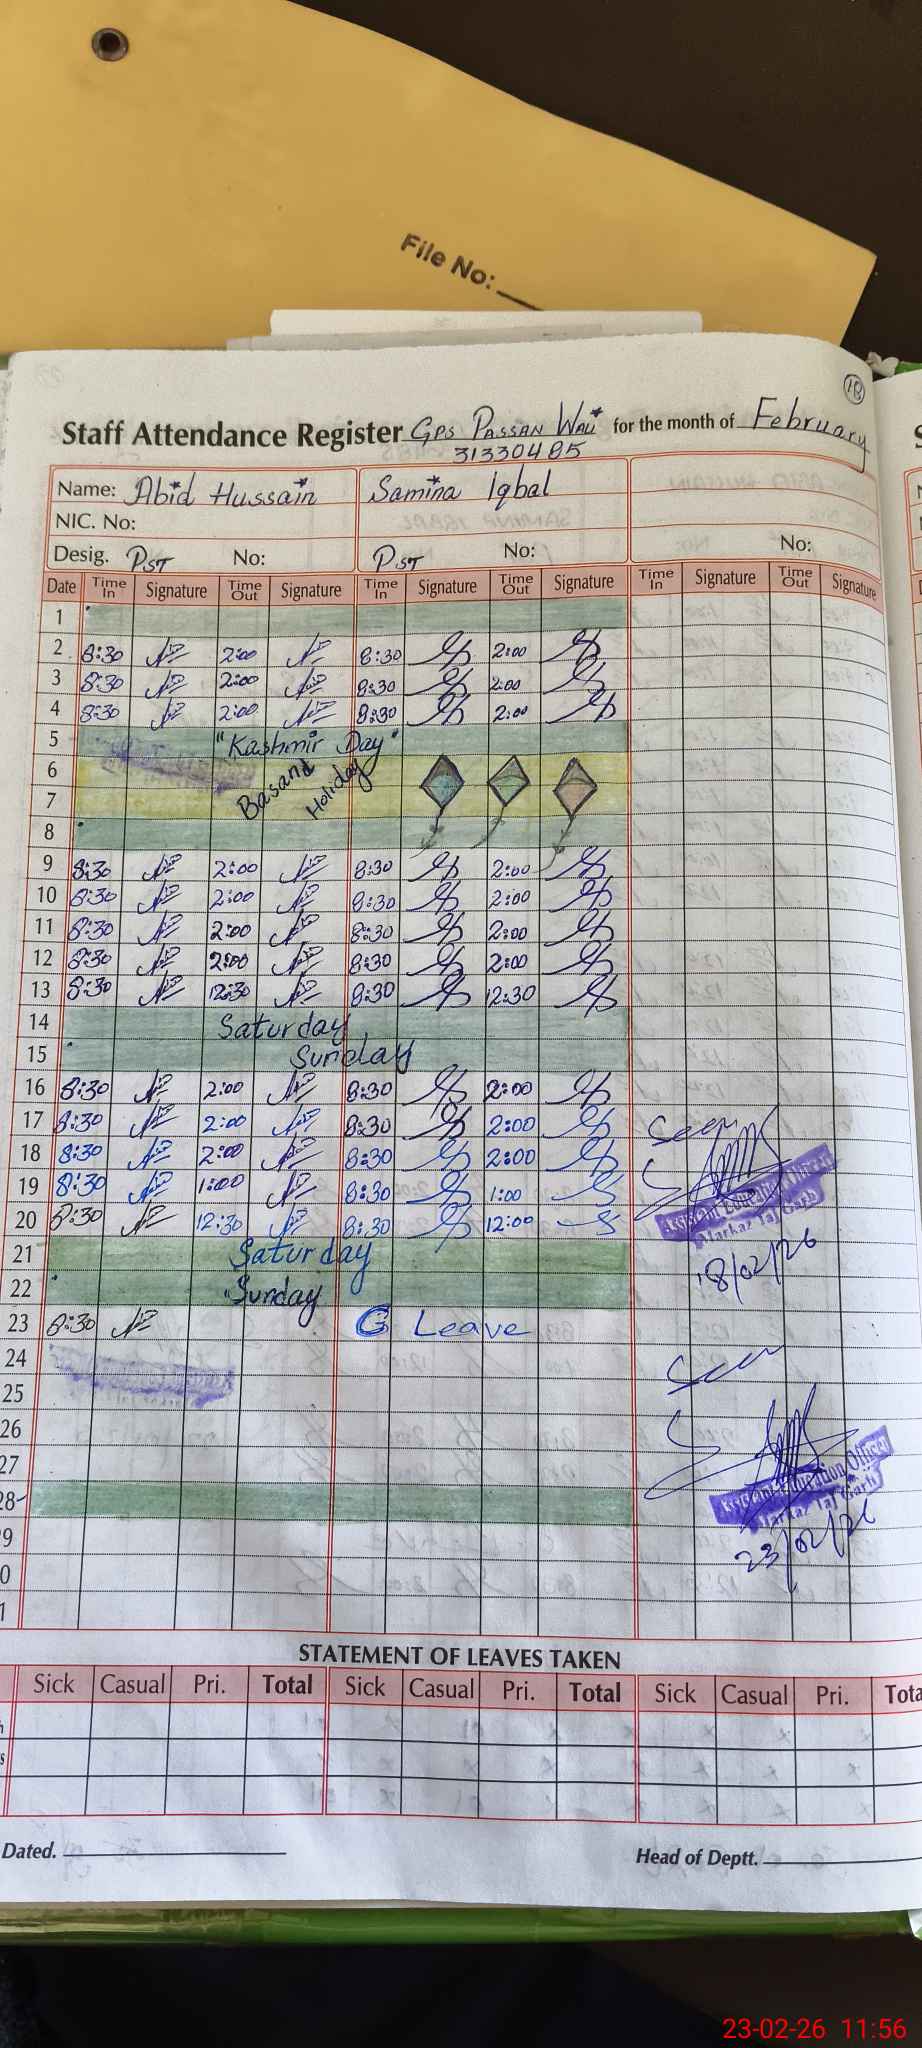 File No:
18
Staff Attendance Register GPS PASSAN WALI for the month of February
31330485
Name: Abid Hussain Samina Iqbal
NIC. No:
Desig. PST No: PST No: No:
Date Time In Signature Time Out Signature Time In Signature Time Out Signature Time In Signature Time Out Signature
1
2 8:30 2:00 8:30 2:00
3 8:30 2:00 8:30 2:00
4 8:30 2:00 8:30 2:00
5 "Kashmir Day"
6 Basand Holiday
7
8
9 8:30 2:00 8:30 2:00
10 8:30 2:00 8:30 2:00
11 8:30 2:00 8:30 2:00
12 8:30 2:00 8:30 2:00
13 8:30 12:30 8:30 12:30
14 Saturday
15 Sunday
16 8:30 2:00 8:30 2:00
17 8:30 2:00 8:30 2:00 Seen
18 8:30 2:00 8:30 2:00
19 8:30 1:00 8:30 1:00 Assistant Education Officer
20 8:30 12:30 8:30 12:00 Markaz Taj Garh
21 Saturday 18/02/26
22 "Sunday
23 8:30 C Leave
24 Seen
25
26
27 Assistant Education Officer
28 Markaz Taj Garh
9 23/02/26
0
1
STATEMENT OF LEAVES TAKEN
Sick Casual Pri. Total Sick Casual Pri. Total Sick Casual Pri. Tota
h
s
Dated. Head of Deptt.
23-02-26 11:56